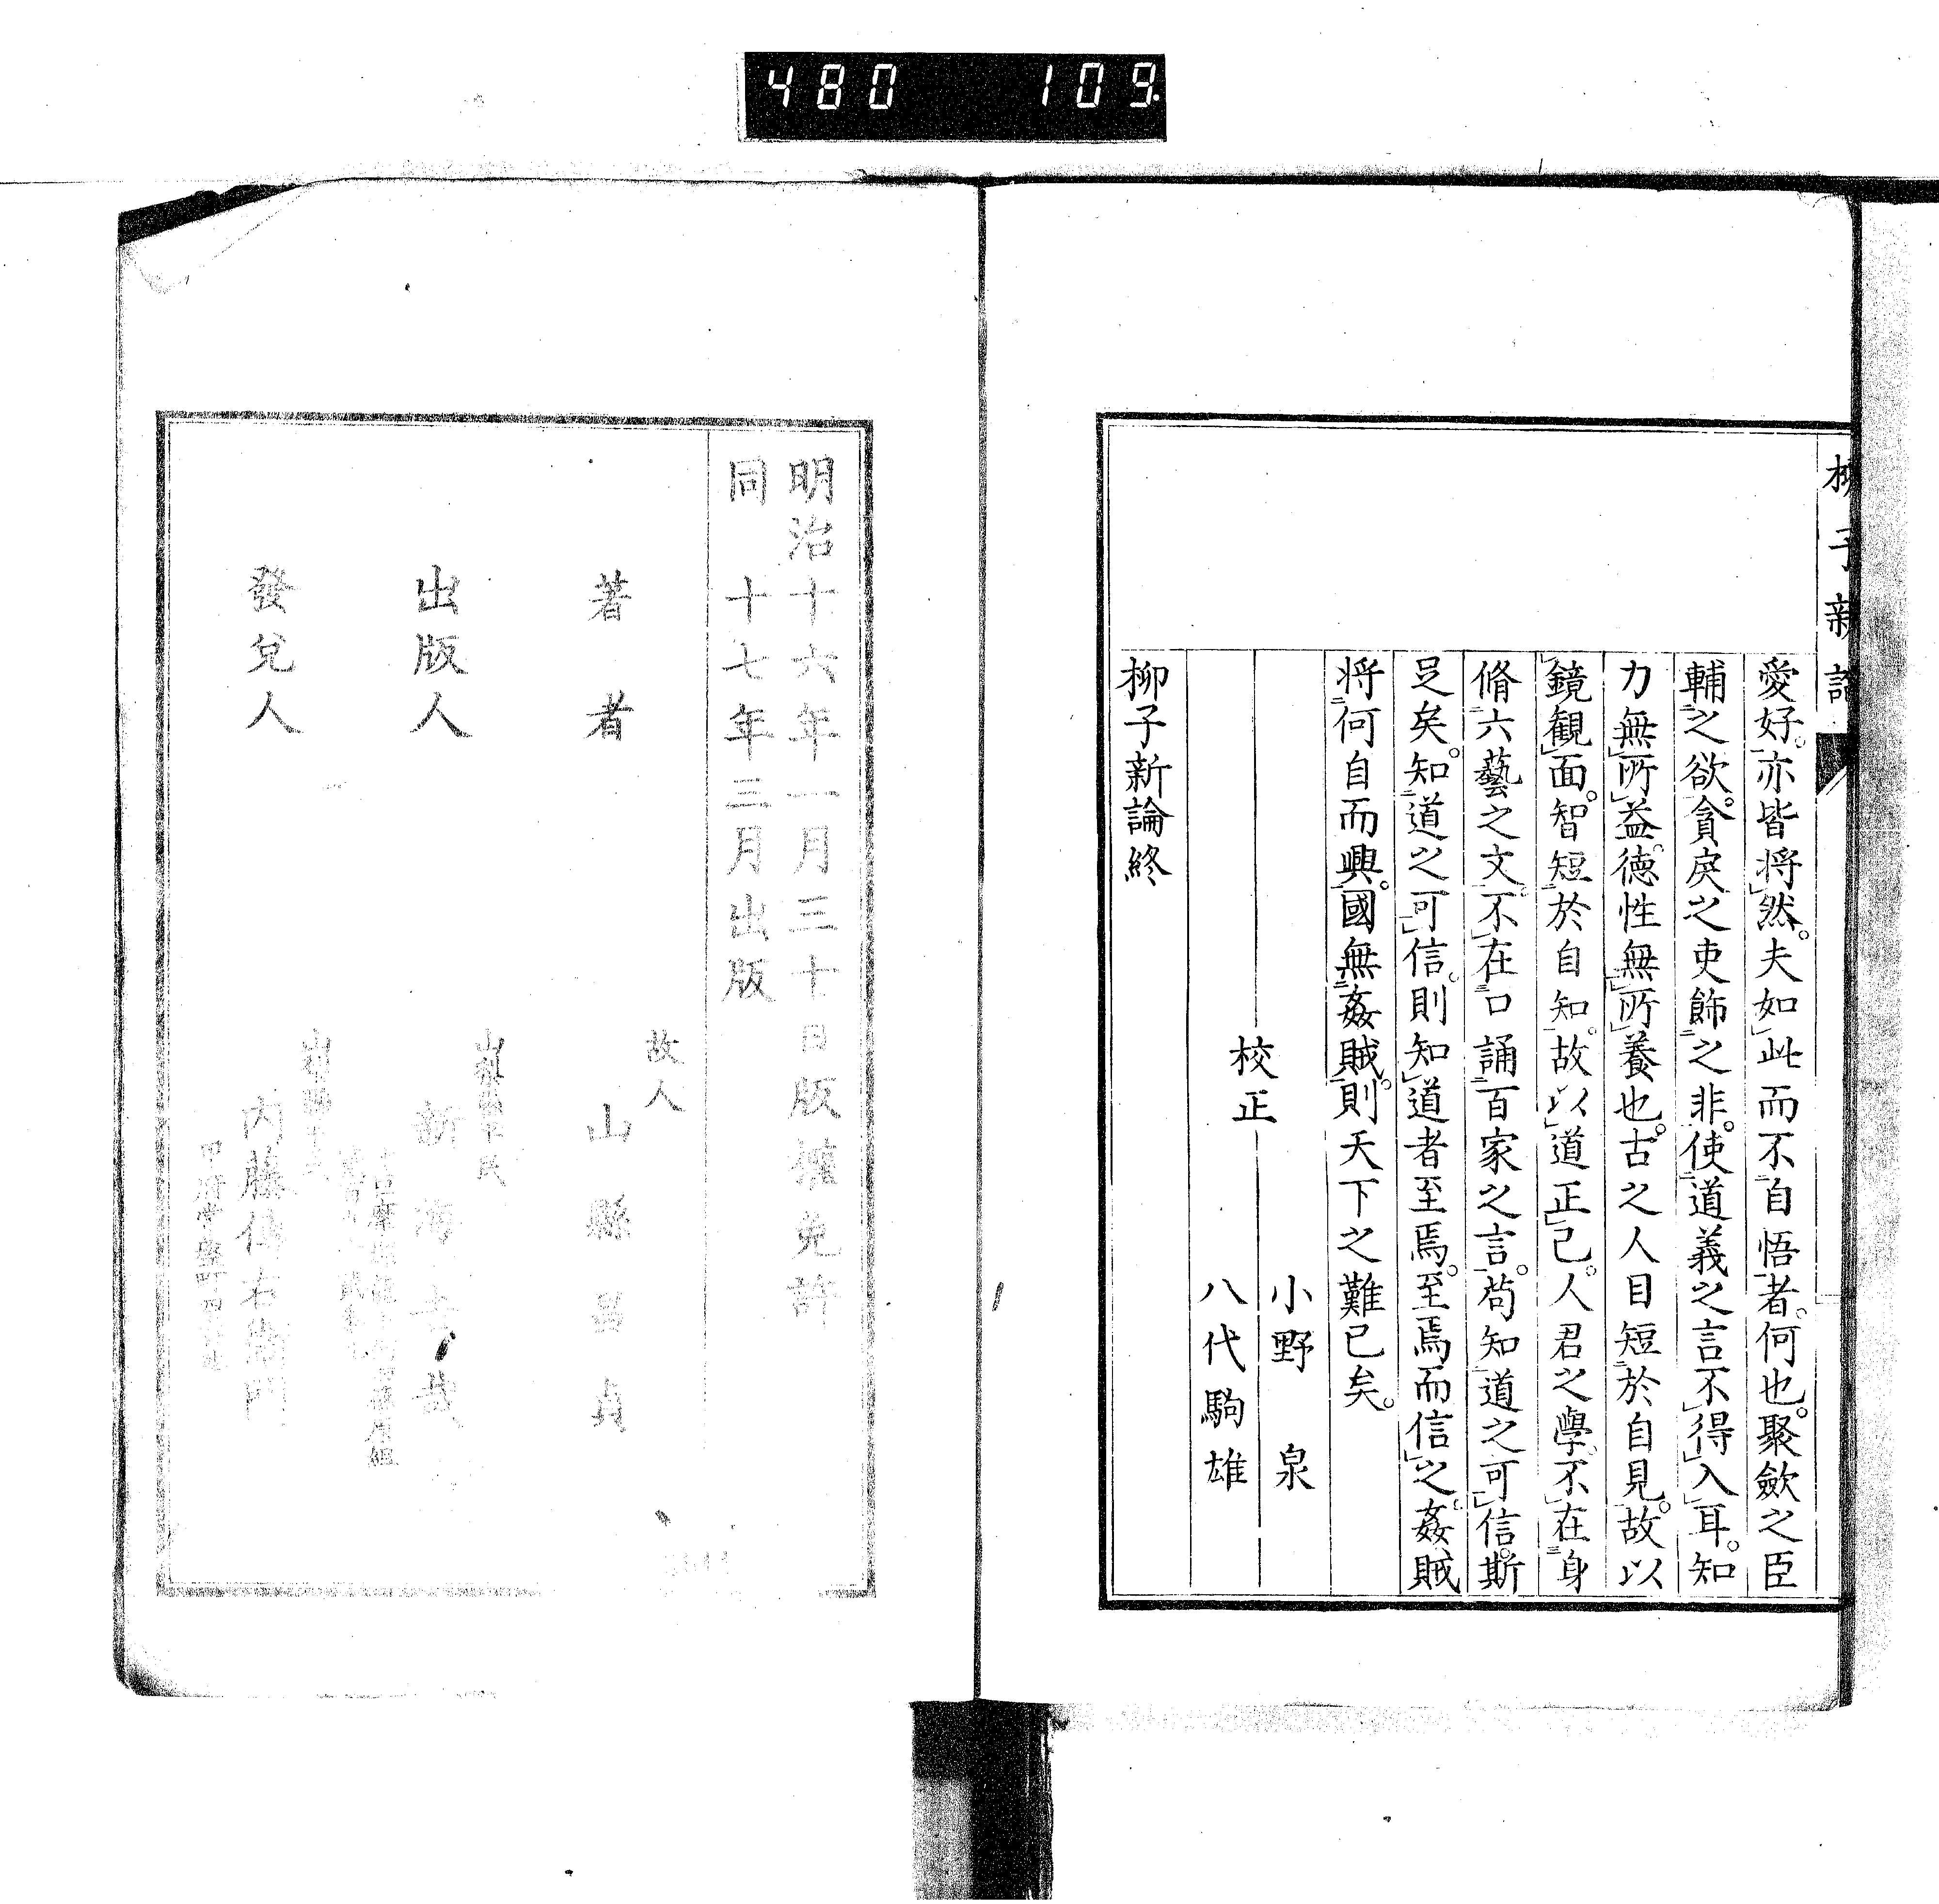 480 109
柳子新論
愛好。亦皆将然。夫如此而不自悟者。何也。聚歛之臣
輔之欲。貪戾之吏飾之非。使道義之言不得入耳。知
力無所益。徳性無所養也。古之人目短於自見。故以
鏡観面。智短於自知。故以道正己。人君之學。不在身
脩六藝之文。不在口誦百家之言。苟知道之可信。斯
足矣。知道之可信。則知道者至焉。至焉而信之。姦賊
将何自而興。國無姦賊。則天下之難已矣。
小野泉
校正
八代駒雄
柳子新論終
明治十六年一月三十日版權免許
同 十七年三月出版
故人
著者 山縣昌貞
山梨縣平民
出版人 新海
發兌人 内藤傳右衛門